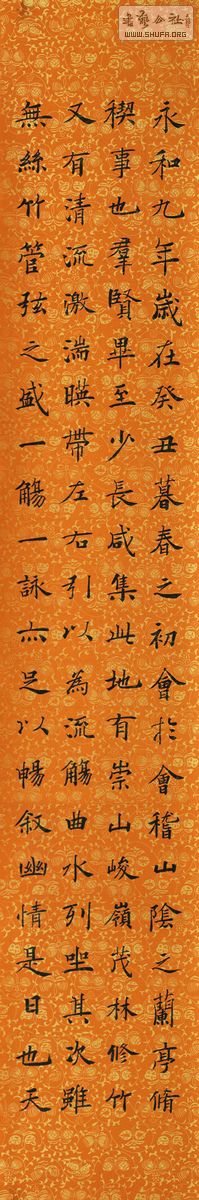 永和九年歲在癸丑暮春之初會於會稽山陰之蘭亭脩
稧事也羣賢畢至少長咸集此地有崇山峻嶺茂林修竹
又有清流激湍暎帶左右引以為流觴曲水列坐其次雖
無絲竹管弦之盛一觴一詠亦足以暢叙幽情是日也天
WWW.SHUFA.ORG